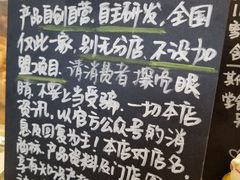 产品自创自营,自主研发,全国
仅此一家,别无分店,不设加
盟项目.请消费者擦亮眼
睛,不要上当受骗,一切本店
资讯,以官方公众号的消
息及回复为主!本店对店名、
商标、产品资料及门店
享有